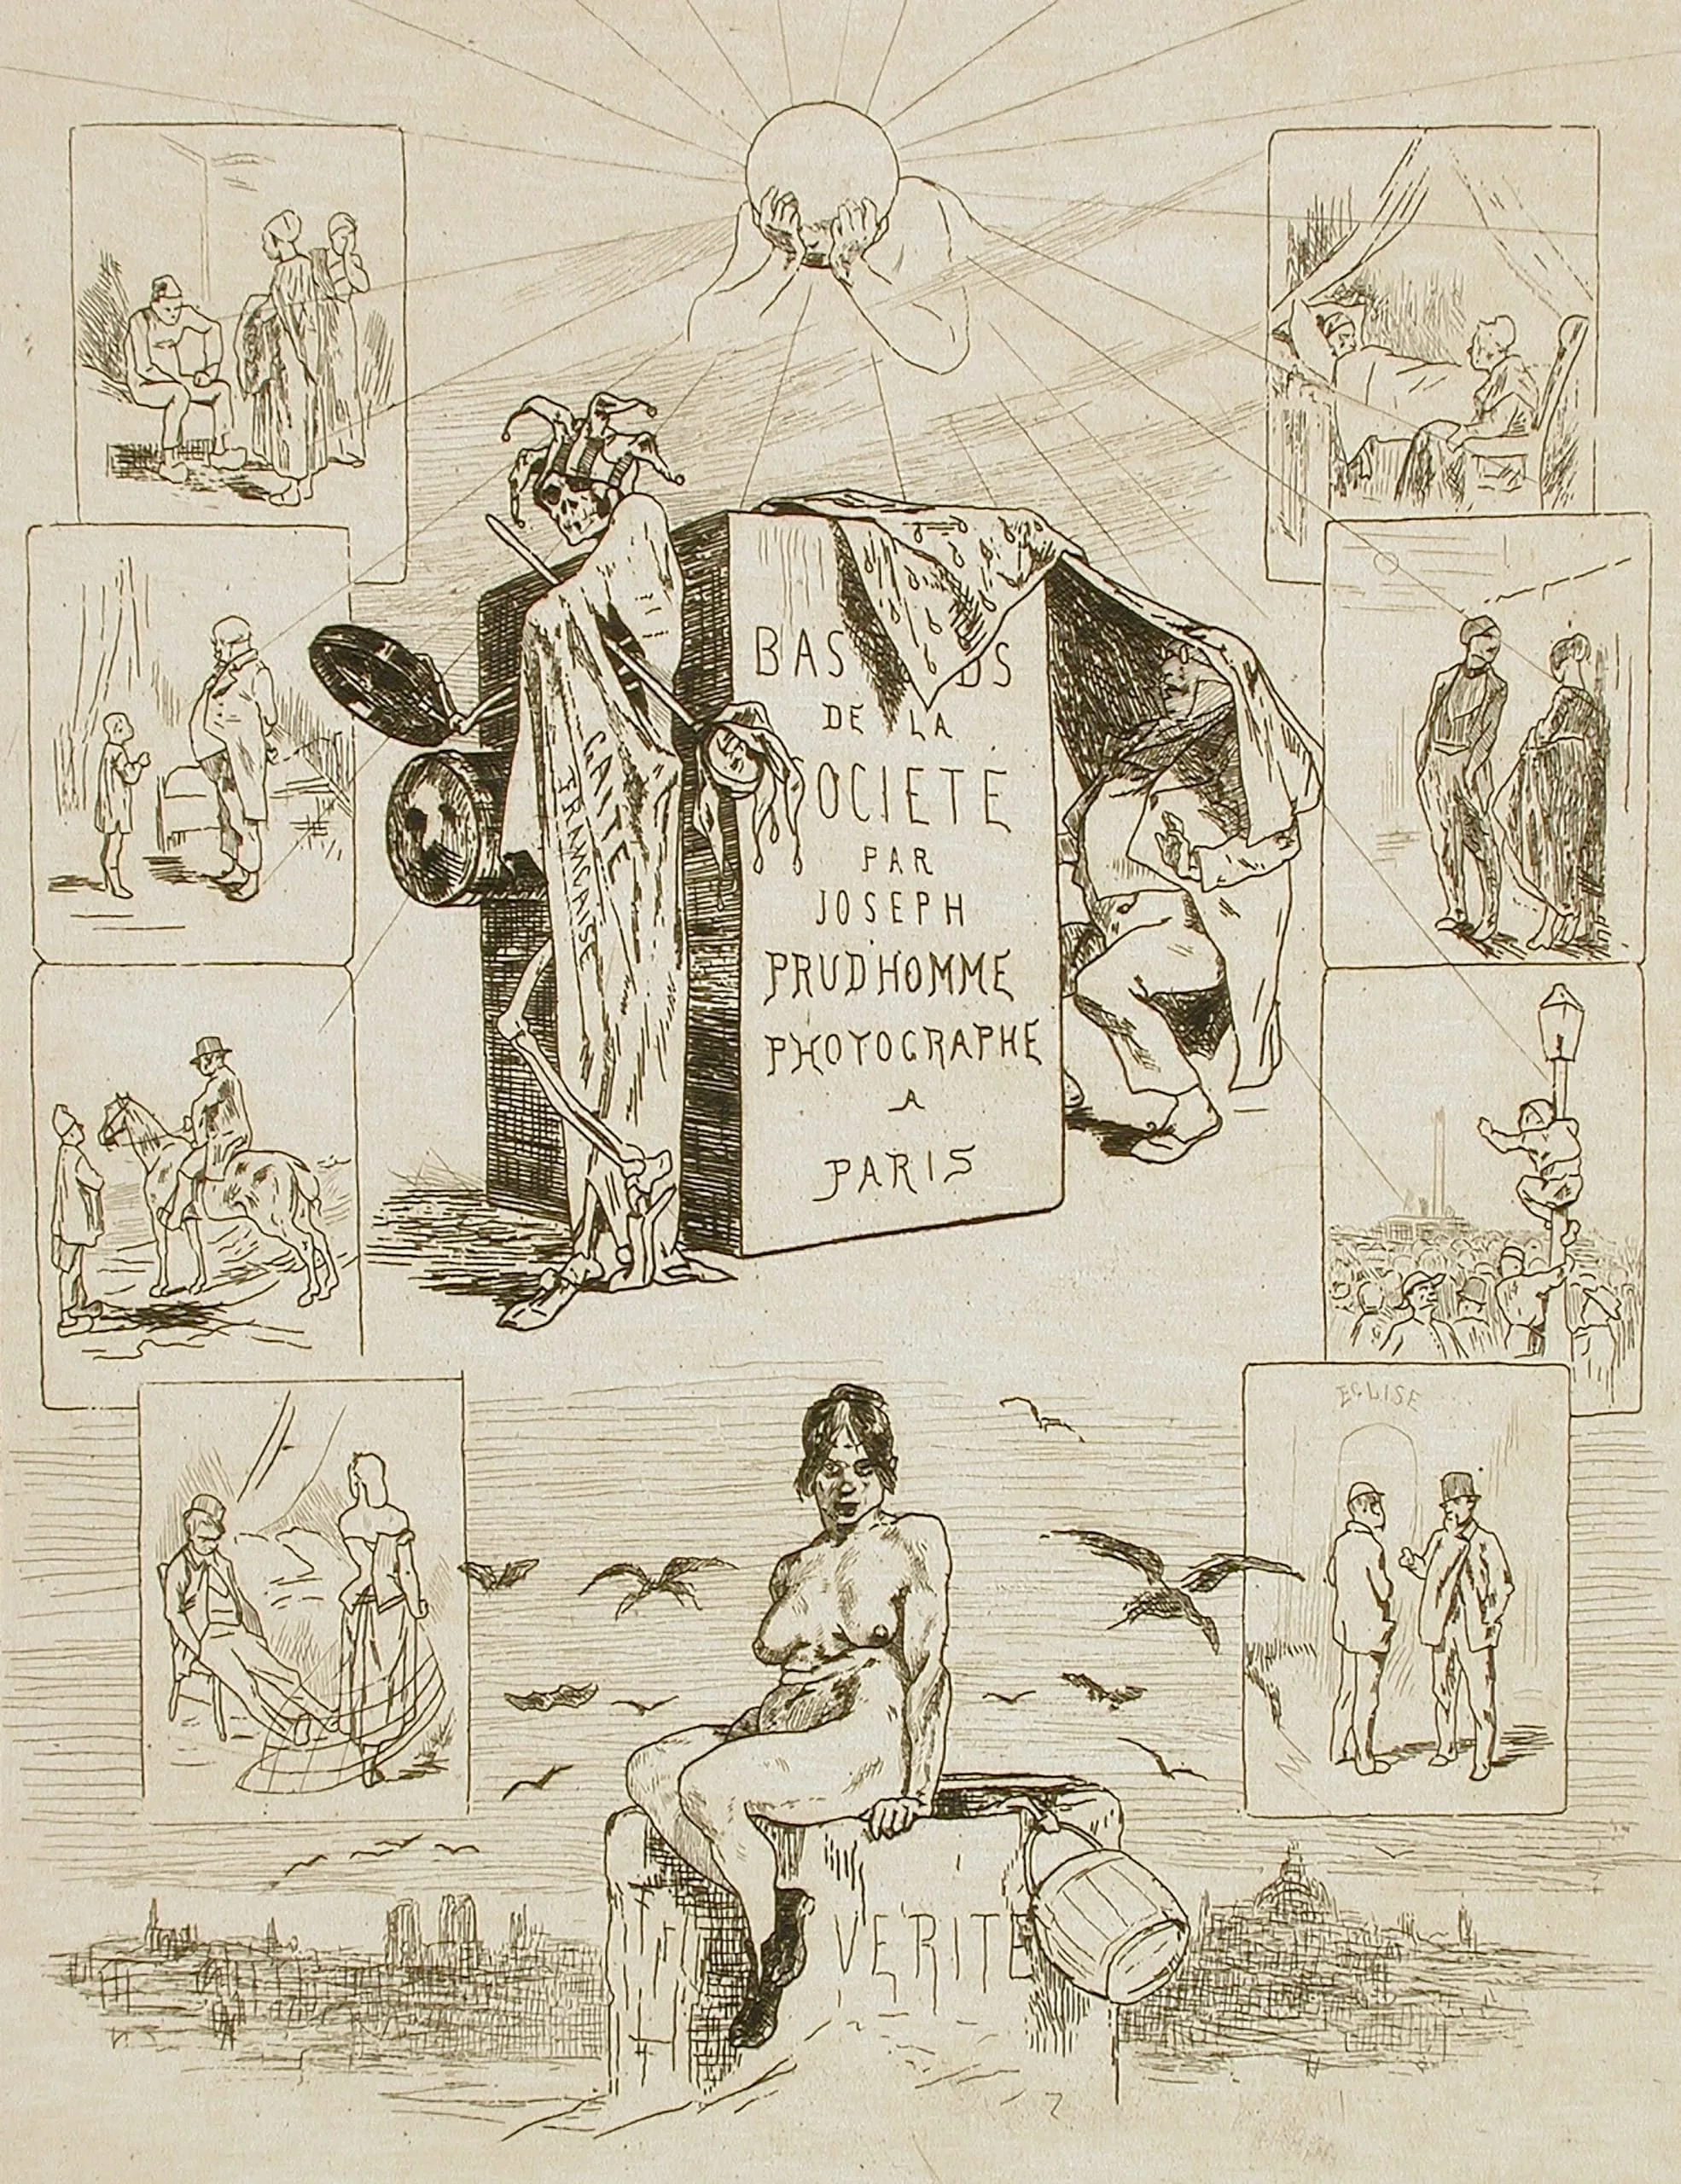 BAS DS
DE LA
SOCIETE
PAR
JOSEPH
PRUDHOMME
PHOTOGRAPHE
A
PARIS
GAITE
FRANCAISE
EGLISE
VERITE